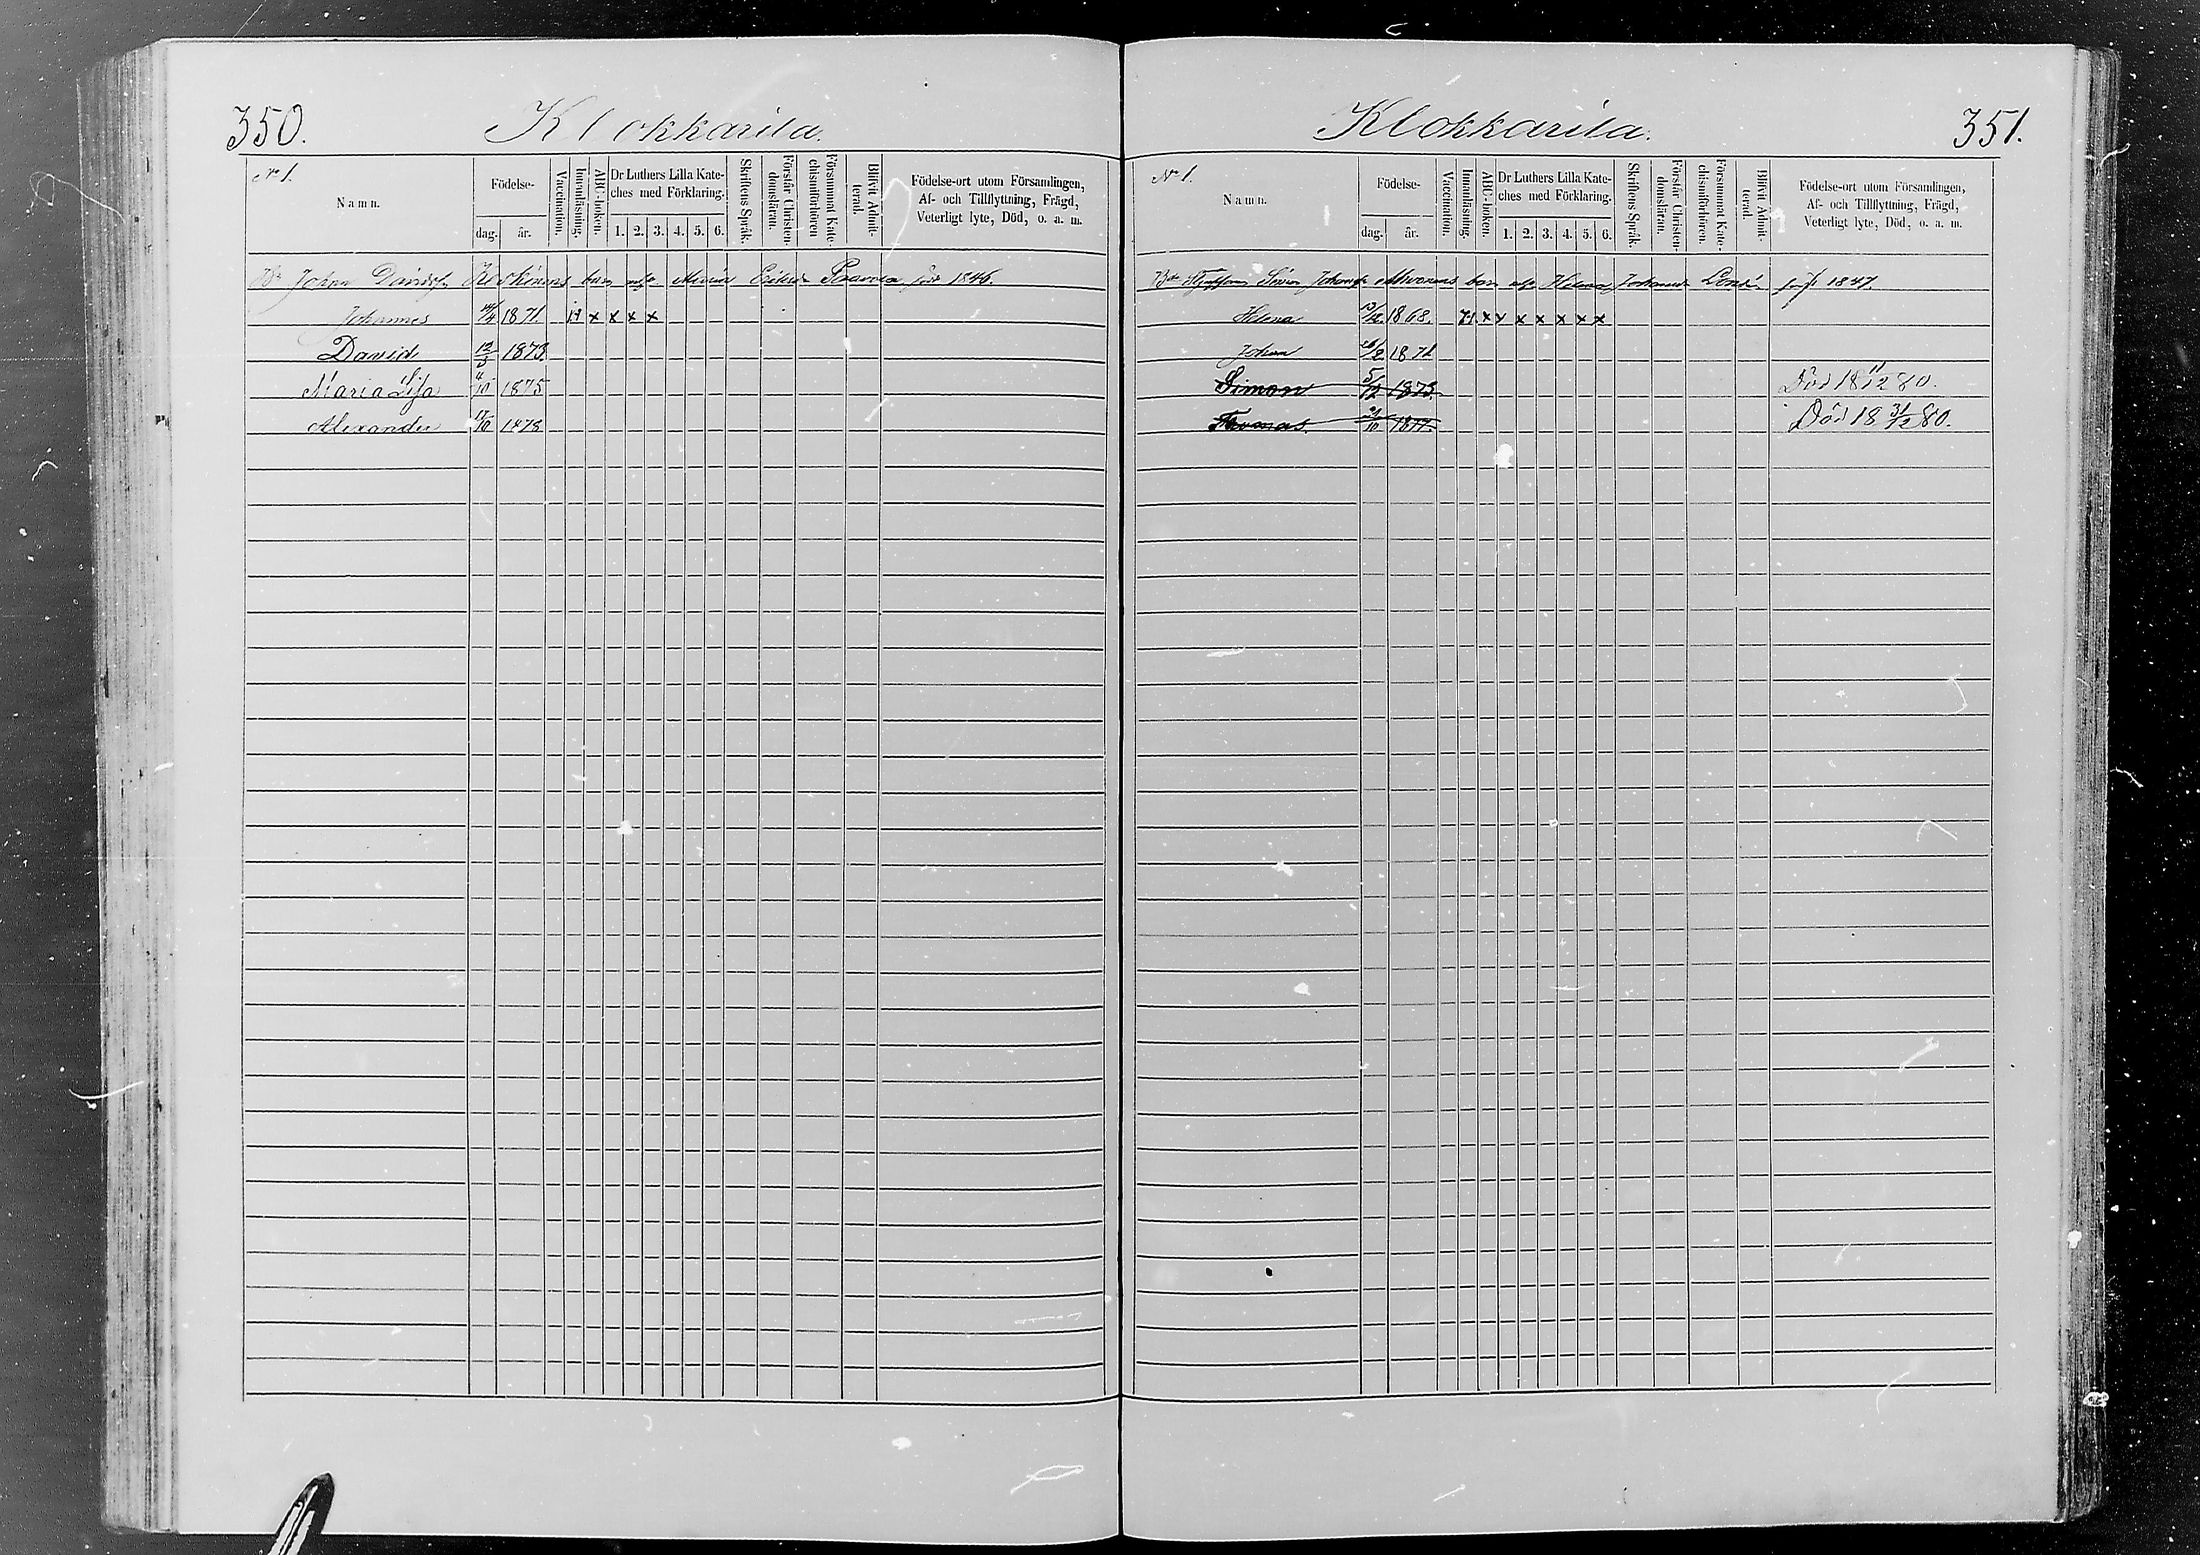 350.
Klokkarila.
No 1.
Namn.
Födelse-
dag. år.
Vaccination.
Innanläsning.
ABC-boken.
Dr Luthers Lilla Kate-
ches med Förklaring.
1. 2. 3. 4. 5. 6.
Skriftens Språk.
Förstår Christen-
domsläran.
Försummat Kate-
chismiförhören
Blifvit Admit-
terad.
Födelse-ort utom Församlingen,
Af- och Tillflyttning, Frägd,
Veterligt lyte, Död, o. a. m.
Johan Davidss. barn Maria född 1846.
Johannes /4 1871. x x x x
David 12/3 1873
Maria Lisa 4/10 1875
Alexander 17/10 1878
Klokkarila.
351.
No 1.
Namn.
Födelse-
dag. år.
Vaccination.
Innanläsning.
ABC-boken.
Dr Luthers Lilla Kate-
ches med Förklaring.
1. 2. 3. 4. 5. 6.
Skriftens Språk.
Förstår Christen-
domsläran.
Försummat Kate-
chismiförhören.
Blifvit Admit-
terad.
Födelse-ort utom Församlingen,
Af- och Tillflyttning, Frägd,
Veterligt lyte, Död, o. a. m.
barn Helena 1847.
Helena /12 1868. x x x x x x x
Johan /2 1871
Simon 5/12 1873. Död 18 11/12 80.
Thomas. /10 1877. Död 18 31/12 80.